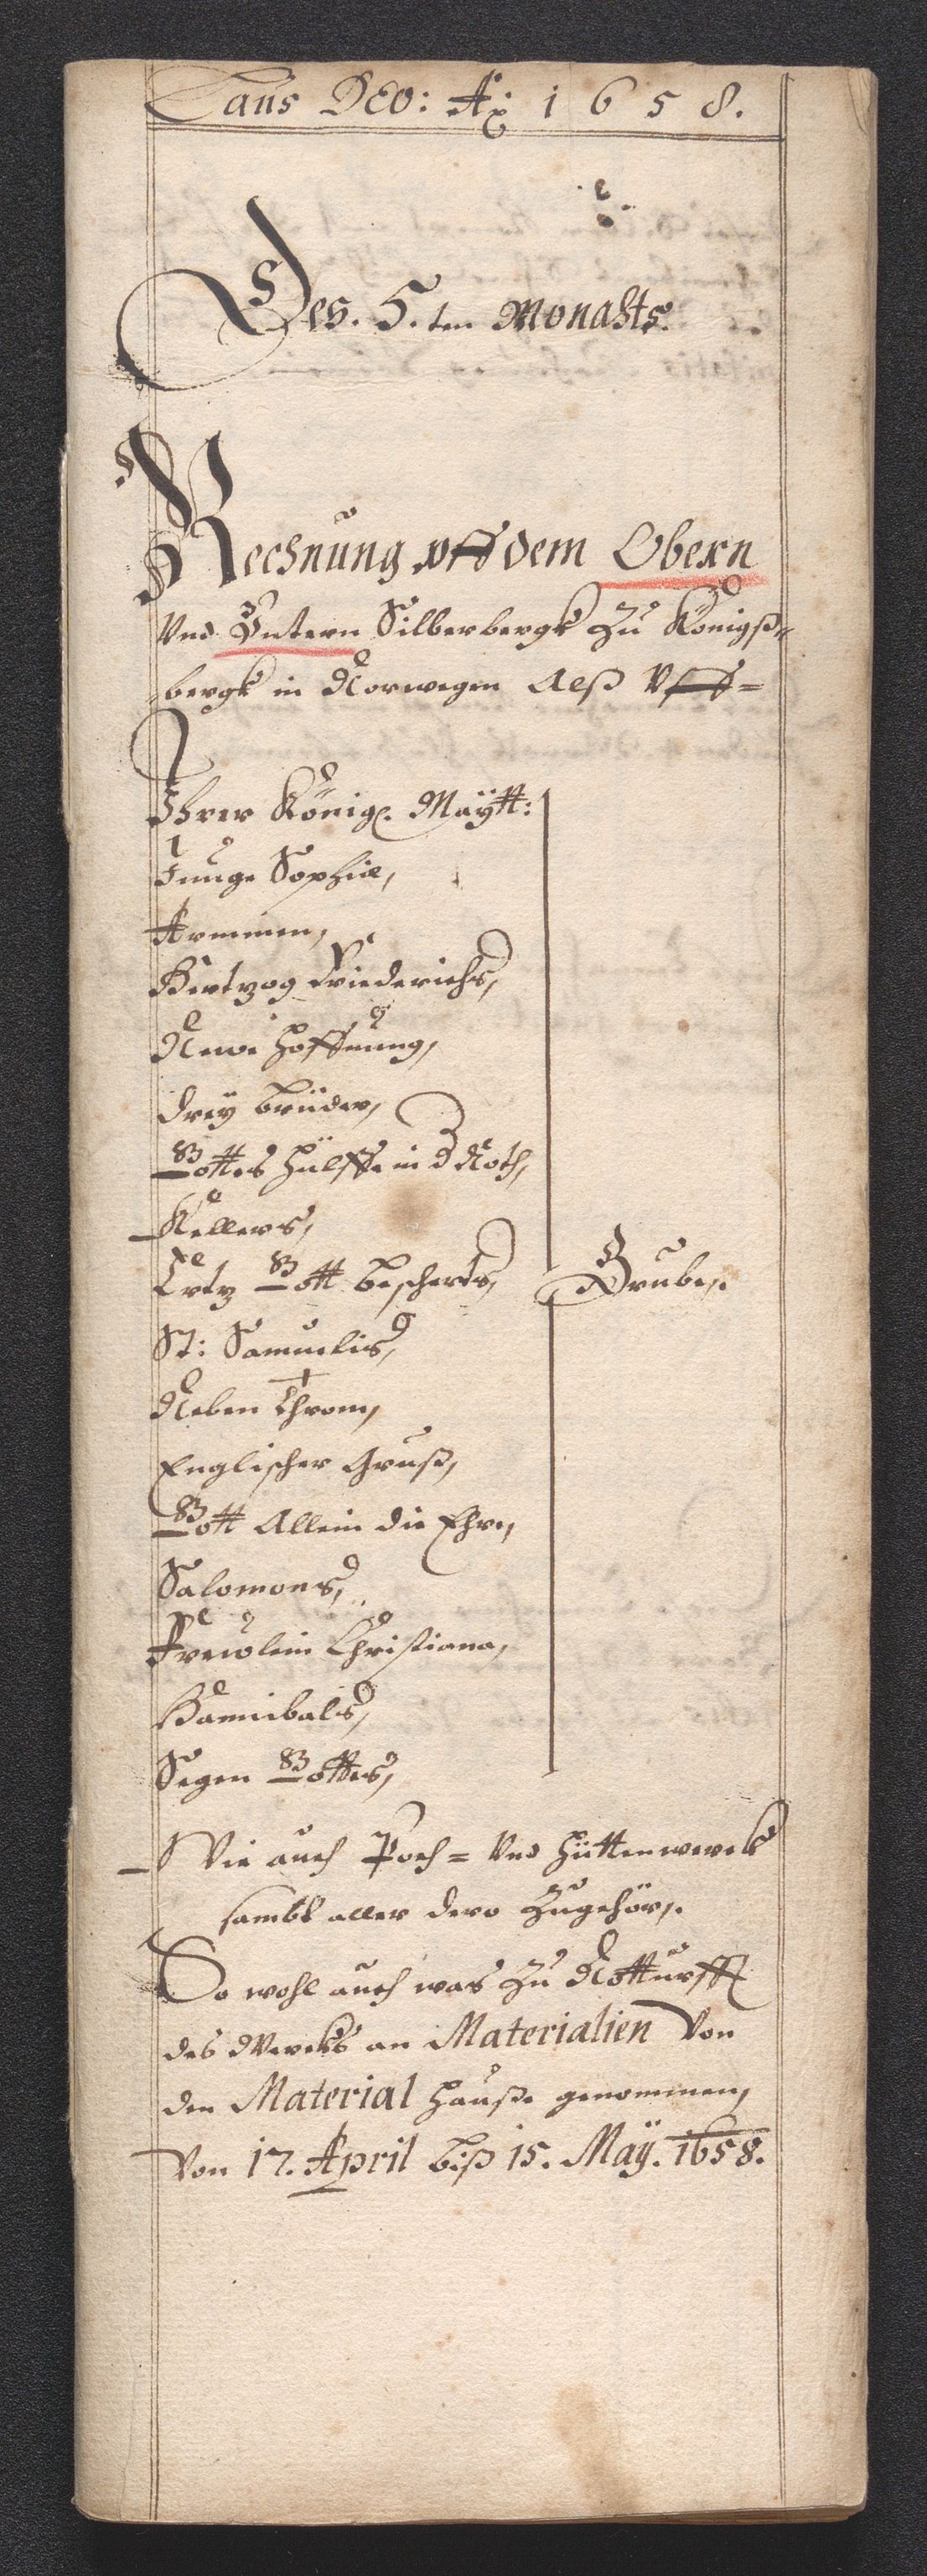 Laus DEO: Aō 1658.
Des. 5.ten Monahts.
Rechnung uff dem Obern
Vnd Vntern Silberbergk Zu Königß=
bergk in Norwegen Alß Vff=
Ihrer Königl. Mäytt:
Junge Sophiæ,
Armmen,
Hertzog Friederichs,
Newe Hoffnung,
Drey Brüder,
Gottes Hülffe in d Noth,
Kellers,
Ertz Gott Bescherts, Grube,
St: Samuelis,
Neben Throm,
Englischer Gruß,
Gott Allein die Ehre,
Salomons,
Frewlein Christiana,
Hannibals,
Segen Gottes,
Wie auch Poch= Vnd Hüttenwerck
sambt aller dero Zugehör,
So wohl auch was Zu Notturfft
des Wercks an Materialien Von
den Material Hauße genommen,
Von 17. April biß 15. Maÿ. 1658.